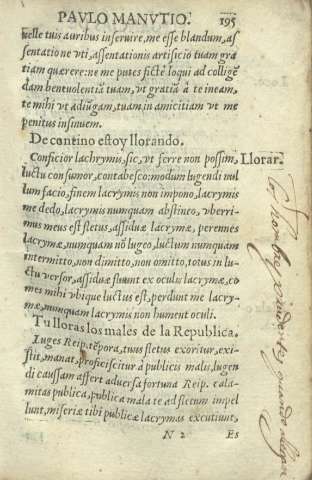 PAVLO MANVTIO. 195
uelle tuis auribus inseruire, me esse blandum, as
sentatione vti, assentationis artificio tuam gra
tiam quærere: ne me putes fictè loqui ad colligẽ
dam beneuolentiã tuam, vt gratiã à te ineam,
te mihi vt adiũgam, tuam in amicitiam vt me
penitus insinuem.
De contino estoy llorando.
Conficior lachrymis, sic, vt ferre non possim, Llorar.
luctu consumor, contabesco: modum lugendi nul
lum facio, finem lacrymis non impono, lacrymis
me dedo, lacrymis numquam abstineo, vberri-
mus meus est fletus, assiduæ lacrymæ, perennes
lacrymæ, numquam nõ lugeo, luctum numquam
intermitto, non dimitto, non omitto, totus in lu-
ctu versor, assiduè fluunt ex oculis lacrymæ, co
mes mihi vbique luctus est, perdunt me lacry-
mæ, numquam lacrymis non hument oculi.
Tu lloras los males de la Republica.
Luges Reip. tẽpora, tuus fletus exoritur, exi-
stit, manat, proficiscitur à publicis malis, lugen
di caussam affert aduersa fortuna Reip. cala-
mitas publica, publica mala te ad fletum impel
lunt, miseriæ tibi publicæ lacrymas excutiunt,
N 2 Es
hombre quando